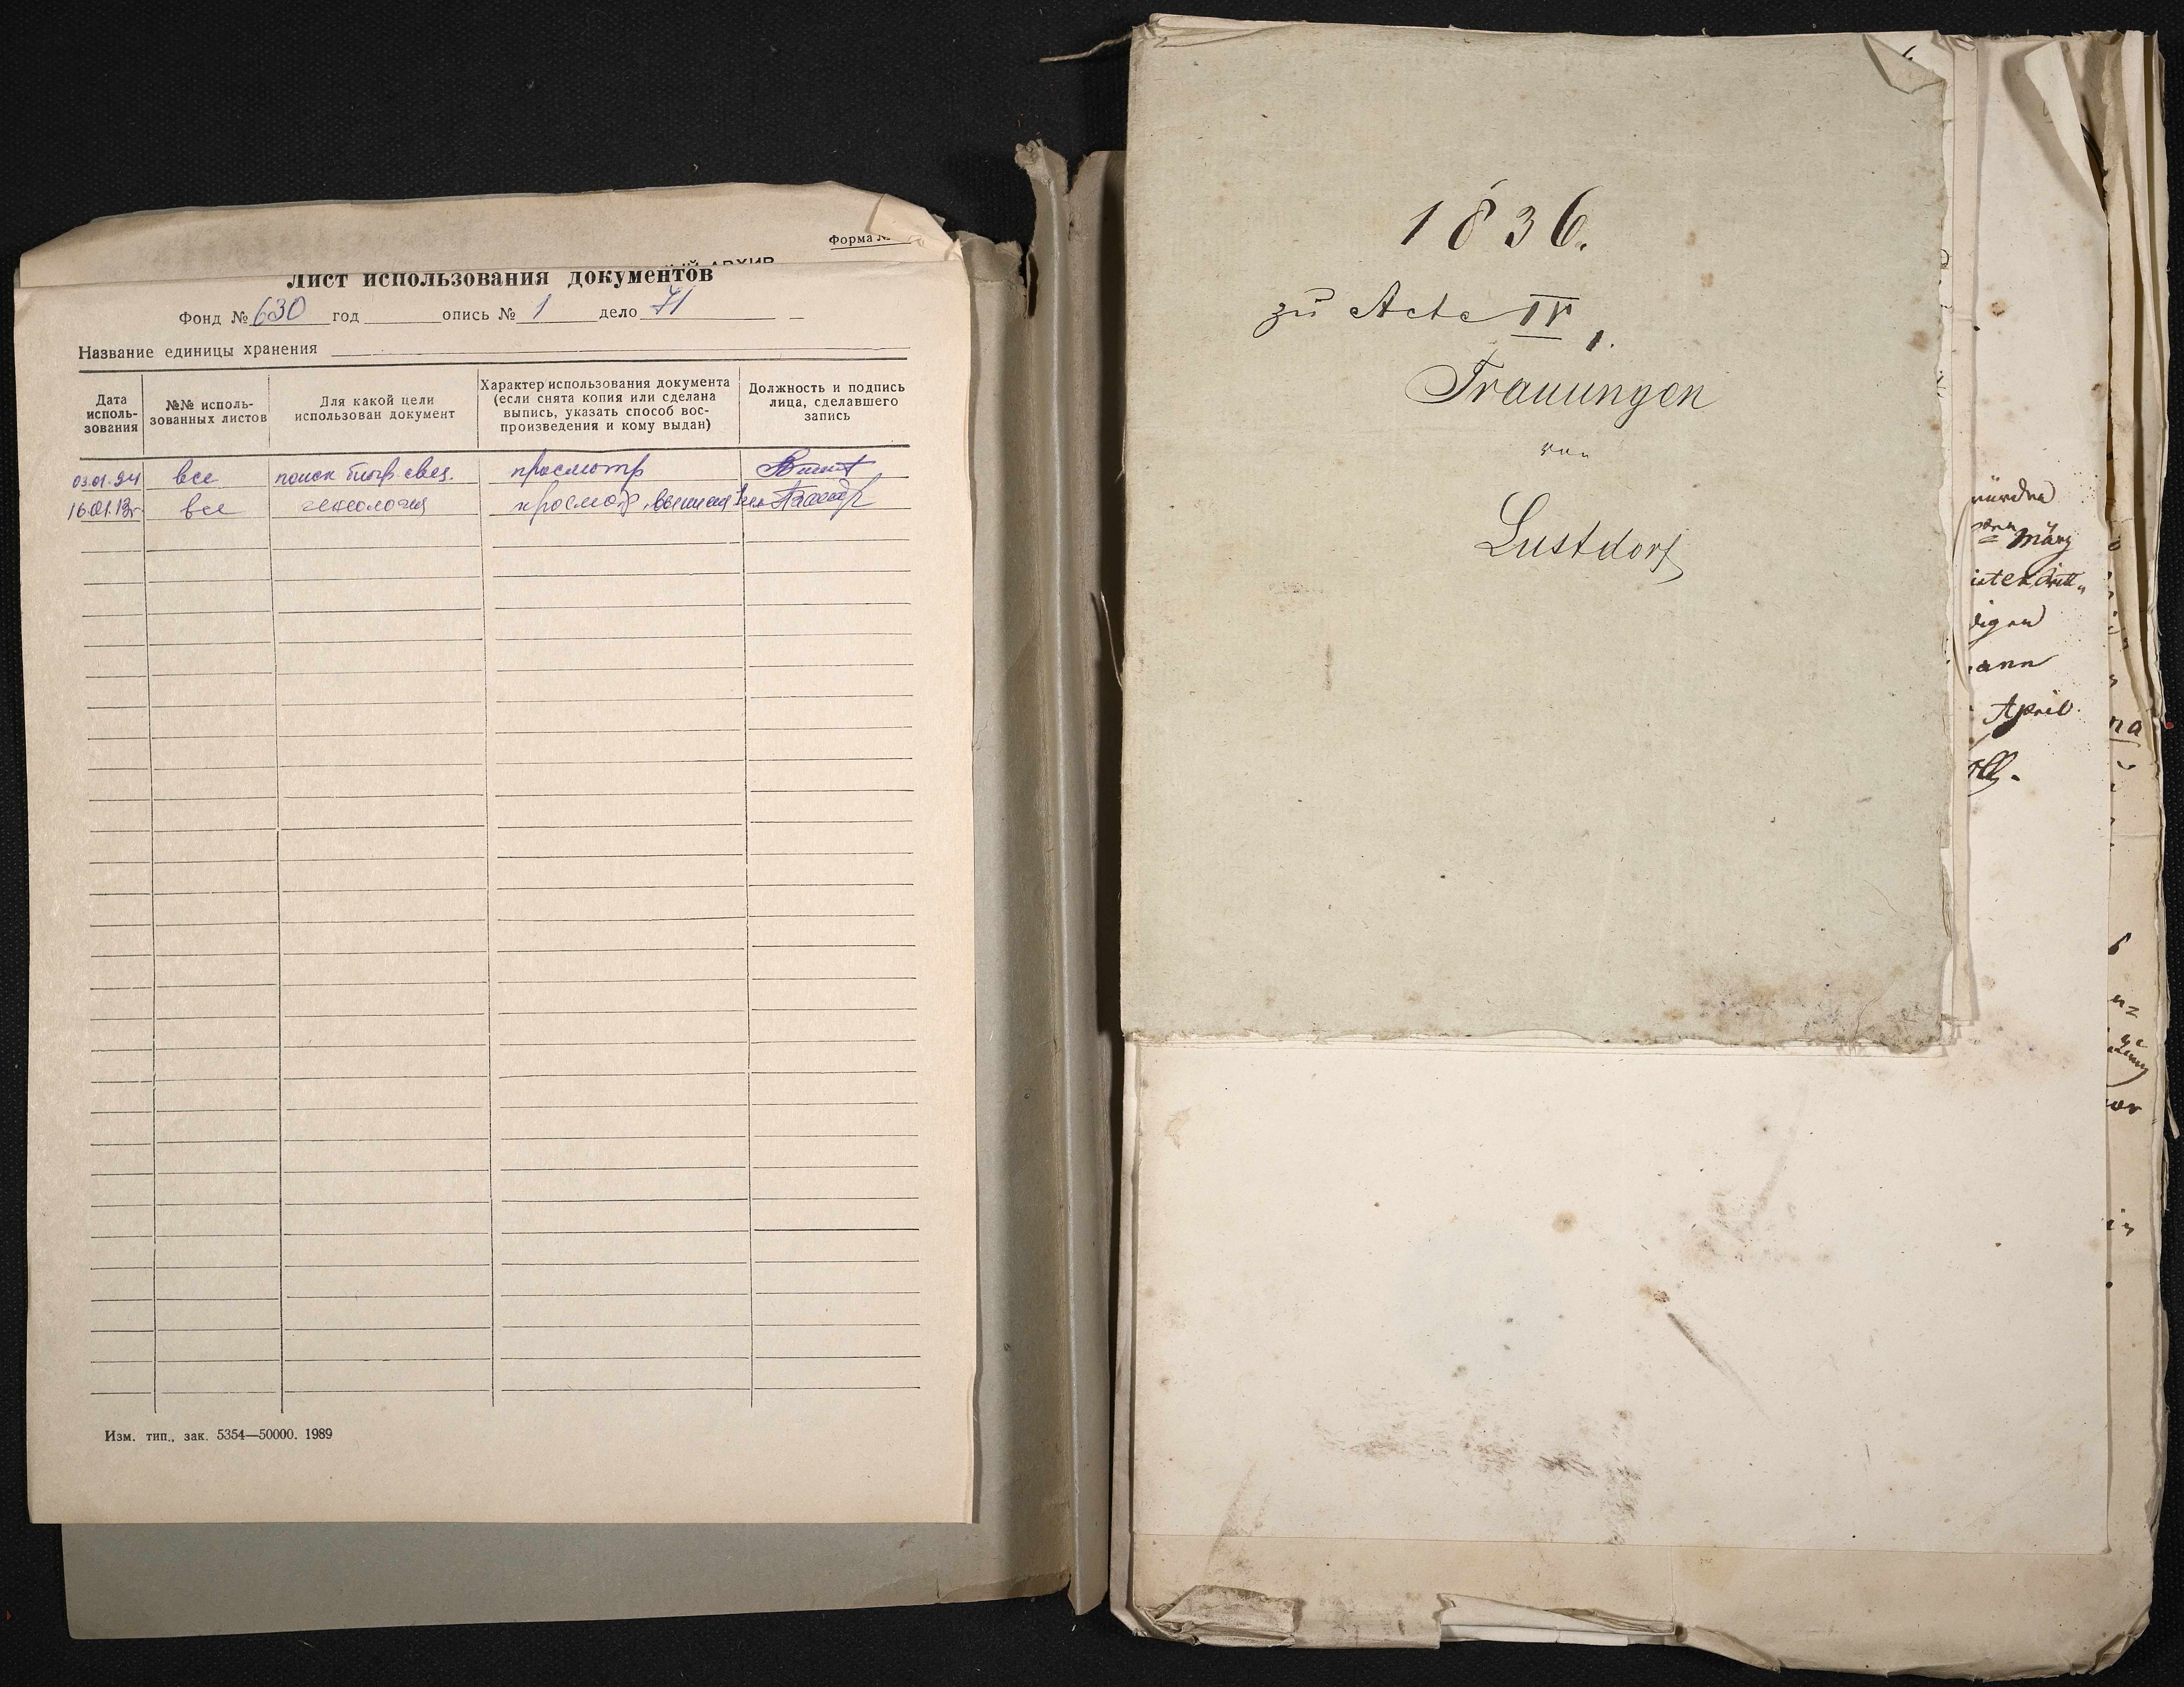 Форма №
ЫЙ АРХИВ
Лист использования документов
Фонд № 630 год опись № 1 дело 71
Название единицы хранения
Дата исполь-зования
№№ исполь-зованных листов
Для какой цели использован документ
Характер использования документа (если снята копия или сделана выпись, указать способ вос-произведения и кому выдан)
Должность и подпись лица, сделавшего запись
03.01.94 все поиск биогр. свед. просмотр
16.01.13г все генеалогия просмотр
Изм. тип., зак. 5354—50000. 1989
1836.
zu Acte IV 1.
Trauungen
von
Lustdorf
März
April